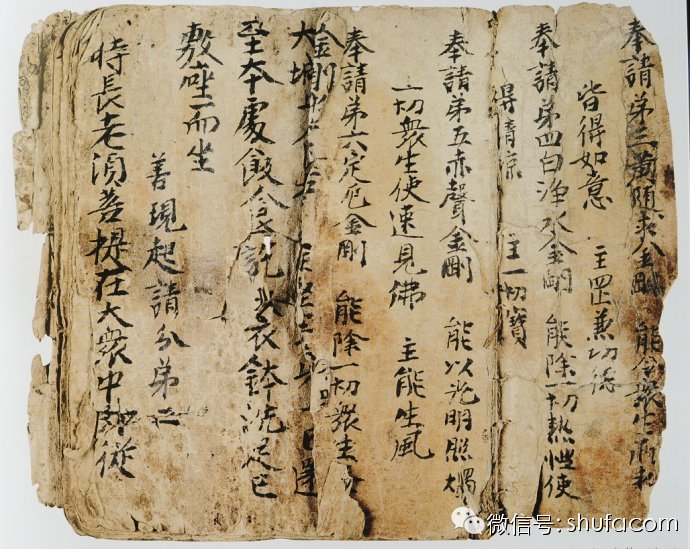 奉請第三黄随求金剛 能令衆生所求
皆得如意 主罡兼功德
奉請第四白净水金剛 能除一切熱 使
得清凉 主一切寶
奉請第五赤聲金剛 能以光明照燭
一切衆生使速見佛 主能生風
奉請第六定厄金剛 能除一切衆生
金剛
大城
至本處飯食訖 衣鉢洗足已
敷座而坐
善現起請分第二
時長老須菩提在大衆中即從
微信号: shufacom